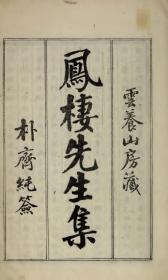 雲養山房藏
鳳棲先生集
朴齊純簽